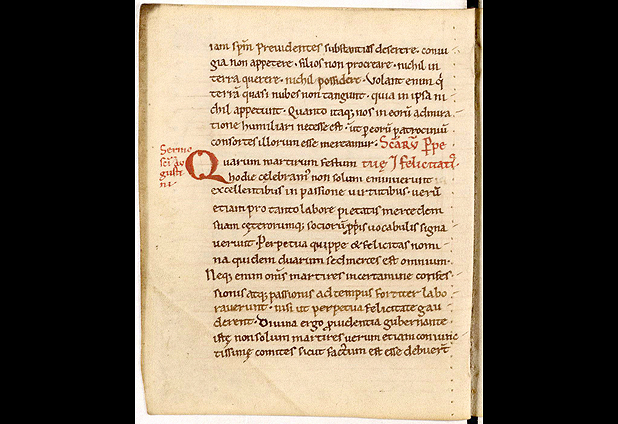 iam spm Prevident̄es substantias deserere · coniu
gia non appetere · filios non procreare · nichil in
terra querere · nichil possidere · Volant enim q̄
terrā quasi nubes non tangunt · quia in ipsa ni
chil appetunt · Quanto itaq; nos in eorū admira
tione humiliari necesse est · ut p̲ eorū patrociniū
consortes illorum esse mereamur · Sc̄arū P̲pe
Sermo
sc̄i Au
gusti
ni
Quarum martirum festum tuę ⁊ felicitatis̄
hodie celebram᾽ non solum emiuerunt
excellentibus in passione uirtutibus · uerū
etiam pro tanto labore pietatis mercedem
suam cęterorumq; sociorū p̲priis uocabulis signa
uerunt · Perpetua quippe & felicitas nomi
na quidem duarum sed merces est omnium ·
Neq; enim om̄s martires in certamine confes
sionis atq; passionis ad tempus fortiter labo
rauerunt · nisi ut perpetua felicitate gau
derent · Diuina ergo p̲uidentia gubernante
istę non solum martires uerum etiam coniunc
tissimę comites sicut factum est esse debuert̄